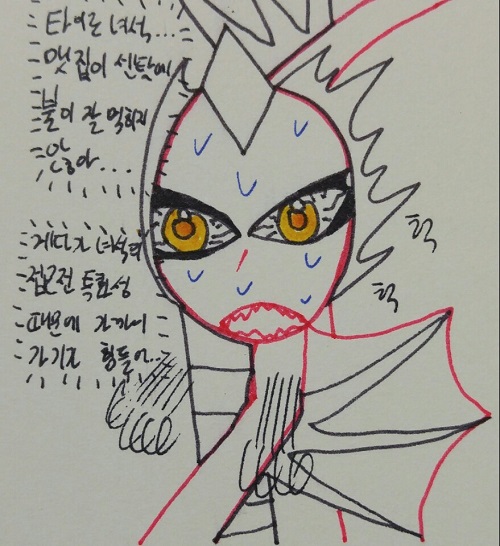 타이로 녀석...
맷집이 센탓에
불이 잘 먹히지
않아....
게다가 녀석의
접근전 특화성
때문에 가까이
가기가 힘들어...
헉
헉